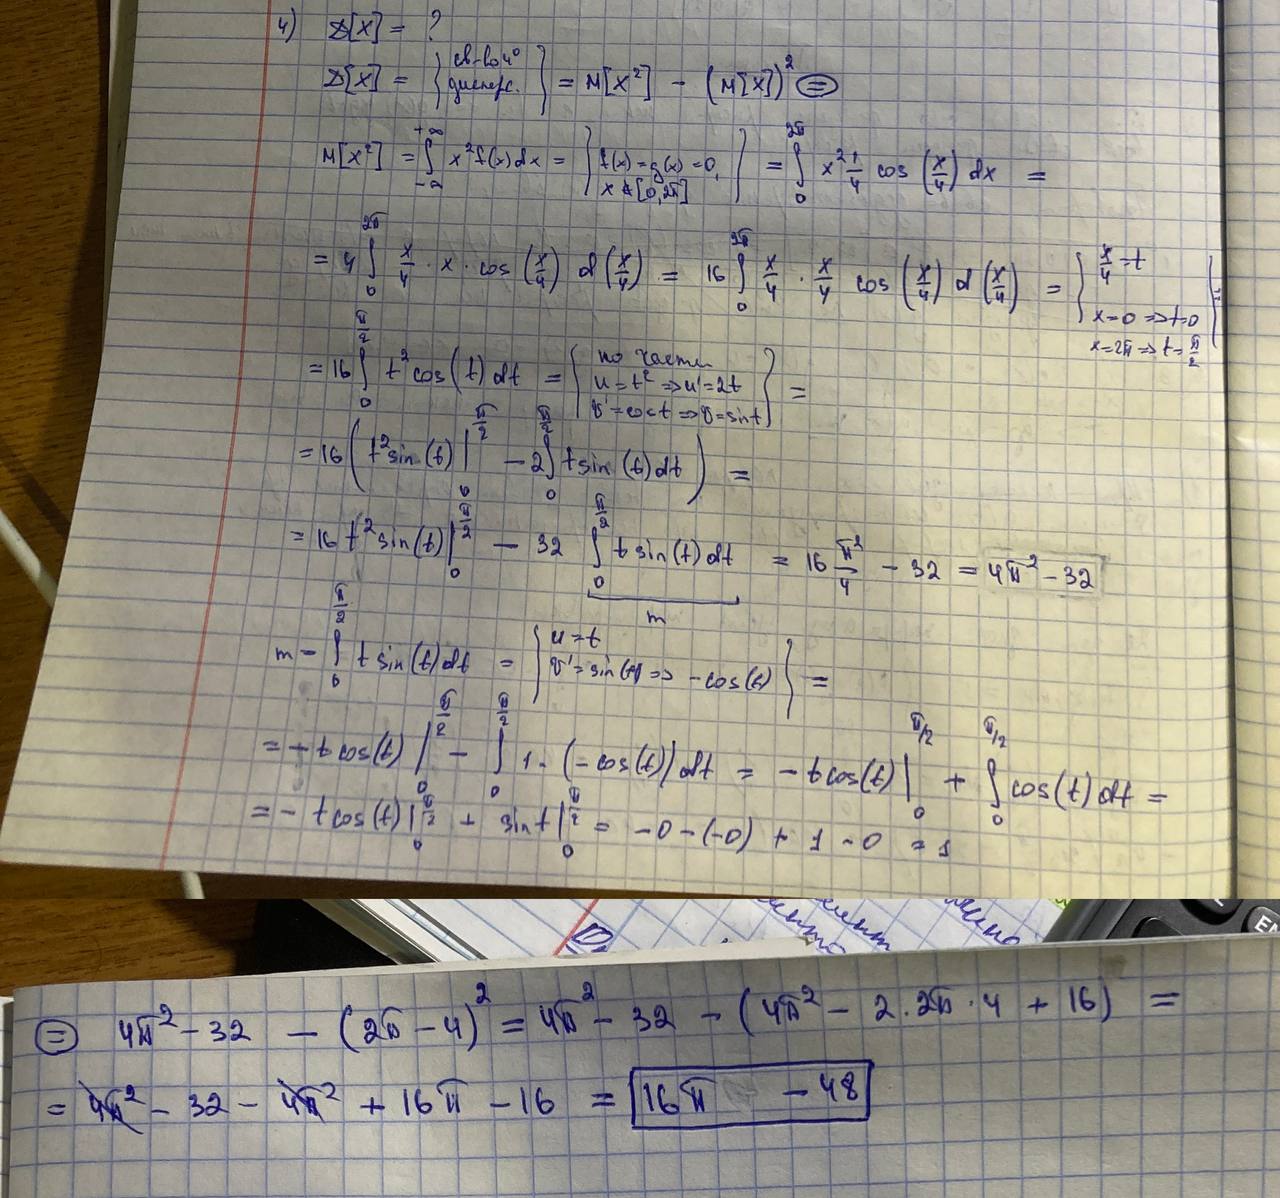 4) D[X] = ?
D[X] = { св-во 4° диперс. } = M[X²] - (M[X])² ⊜
M[X²] = ∫_{-∞}^{+∞} x² f(x) dx = { f(x) = g(x) = 0, x ∉ [0, 2π] } = ∫_0^{2π} x² 1/4 cos (x/4) dx =
= 4 ∫_0^{2π} x/4 · x · cos (x/4) d(x/4) = 16 ∫_0^{2π} x/4 · x/4 cos (x/4) d(x/4) = { x/4 = t x=0 => t=0 x=2π => t=π/2 } =
= 16 ∫_0^{π/2} t² cos(t) dt = { по частям u = t² => u' = 2t v' = cos t => v = sin t } =
= 16 ( t² sin(t) |_0^{π/2} - 2 ∫_0^{π/2} t sin(t) dt ) =
= 16 t² sin(t) |_0^{π/2} - 32 ∫_0^{π/2} t sin(t) dt = 16 π²/4 - 32 = 4π² - 32
m
m = ∫_0^{π/2} t sin(t) dt = { u = t v' = sin(t) => -cos(t) } =
= - t cos(t) |_0^{π/2} - ∫_0^{π/2} 1 · (-cos(t)) dt = - t cos(t) |_0^{π/2} + ∫_0^{π/2} cos(t) dt =
= - t cos(t) |_0^{π/2} + sin t |_0^{π/2} = -0 - (-0) + 1 - 0 = 1
EN
⊜ 4π² - 32 - (2π - 4)² = 4π² - 32 - (4π² - 2·2π·4 + 16) =
= 4π² - 32 - 4π² + 16π - 16 = 16π - 48